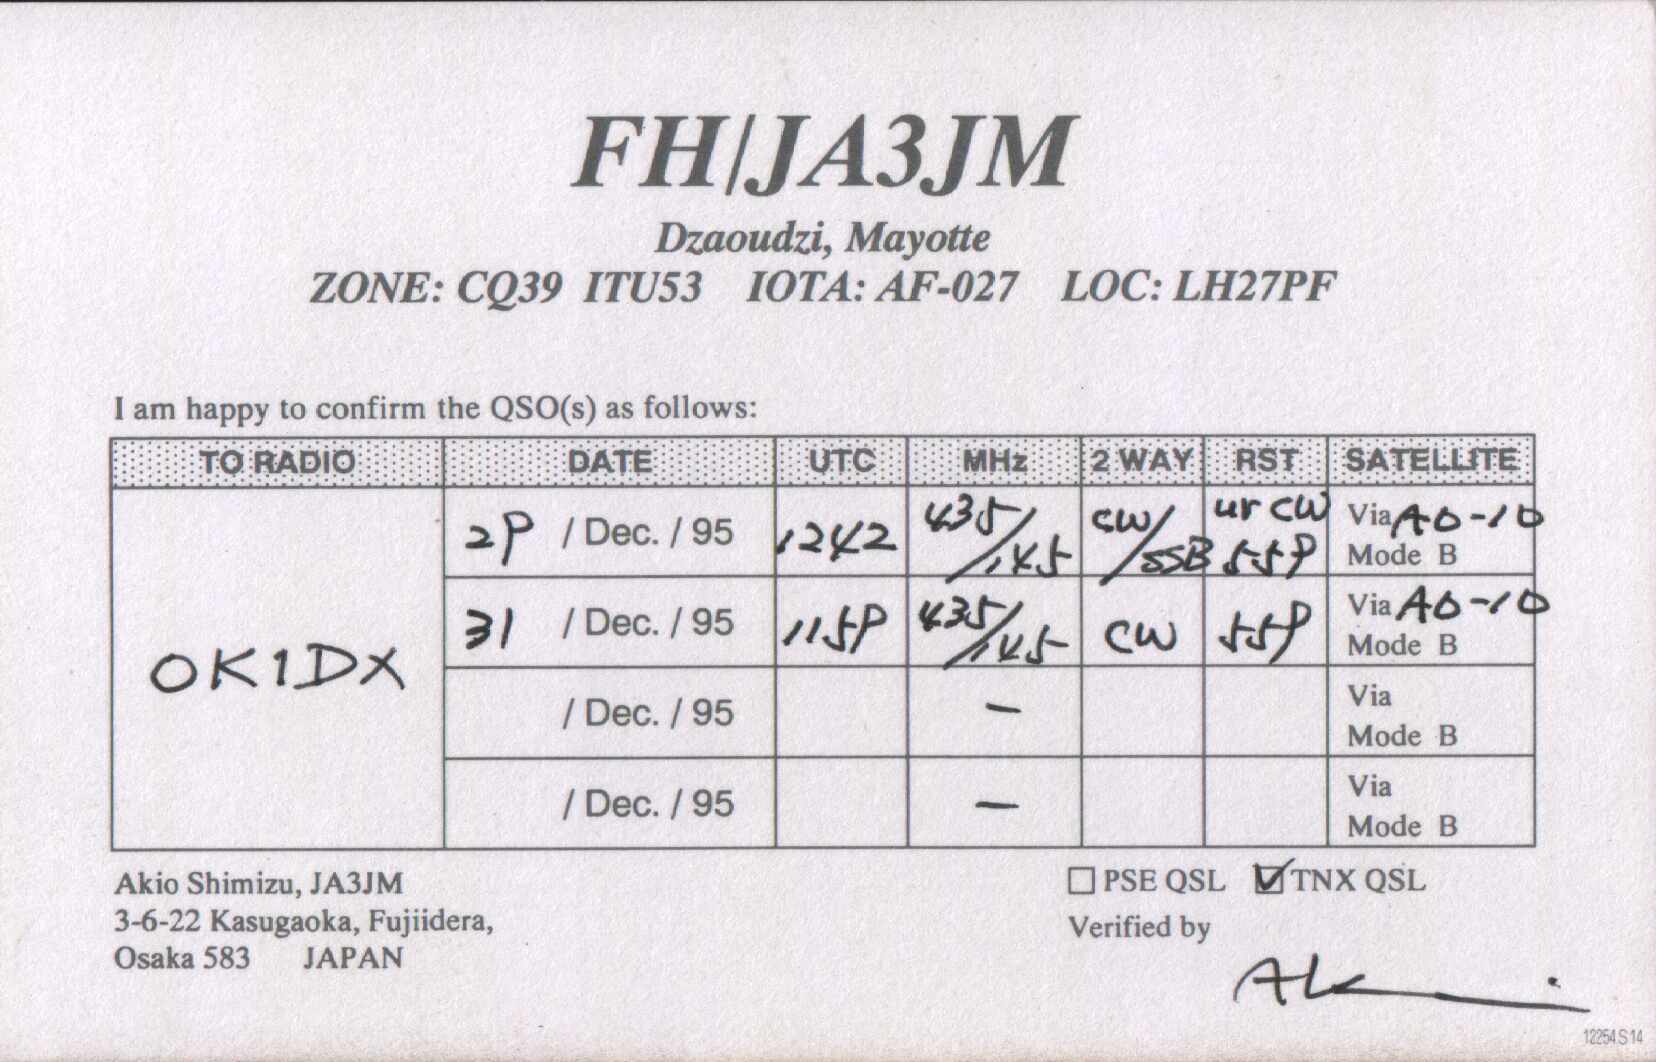 FH/JA3JM
Dzaoudzi, Mayotte
ZONE: CQ39 ITU53 IOTA: AF-027 LOC: LH27PF
I am happy to confirm the QSO(s) as follows:
TO RADIO DATE UTC MHz 2 WAY RST SATELLITE
OK1DX
29 / Dec. / 95 1242 435/145 CW/SSB ur CW 559 Via AO-10
Mode B
31 / Dec. / 95 1159 435/145 CW 559 Via AO-10
Mode B
/ Dec. / 95 – Via
Mode B
/ Dec. / 95 – Via
Mode B
Akio Shimizu, JA3JM
3-6-22 Kasugaoka, Fujiidera,
Osaka 583 JAPAN
PSE QSL TNX QSL
Verified by
12254 S 14